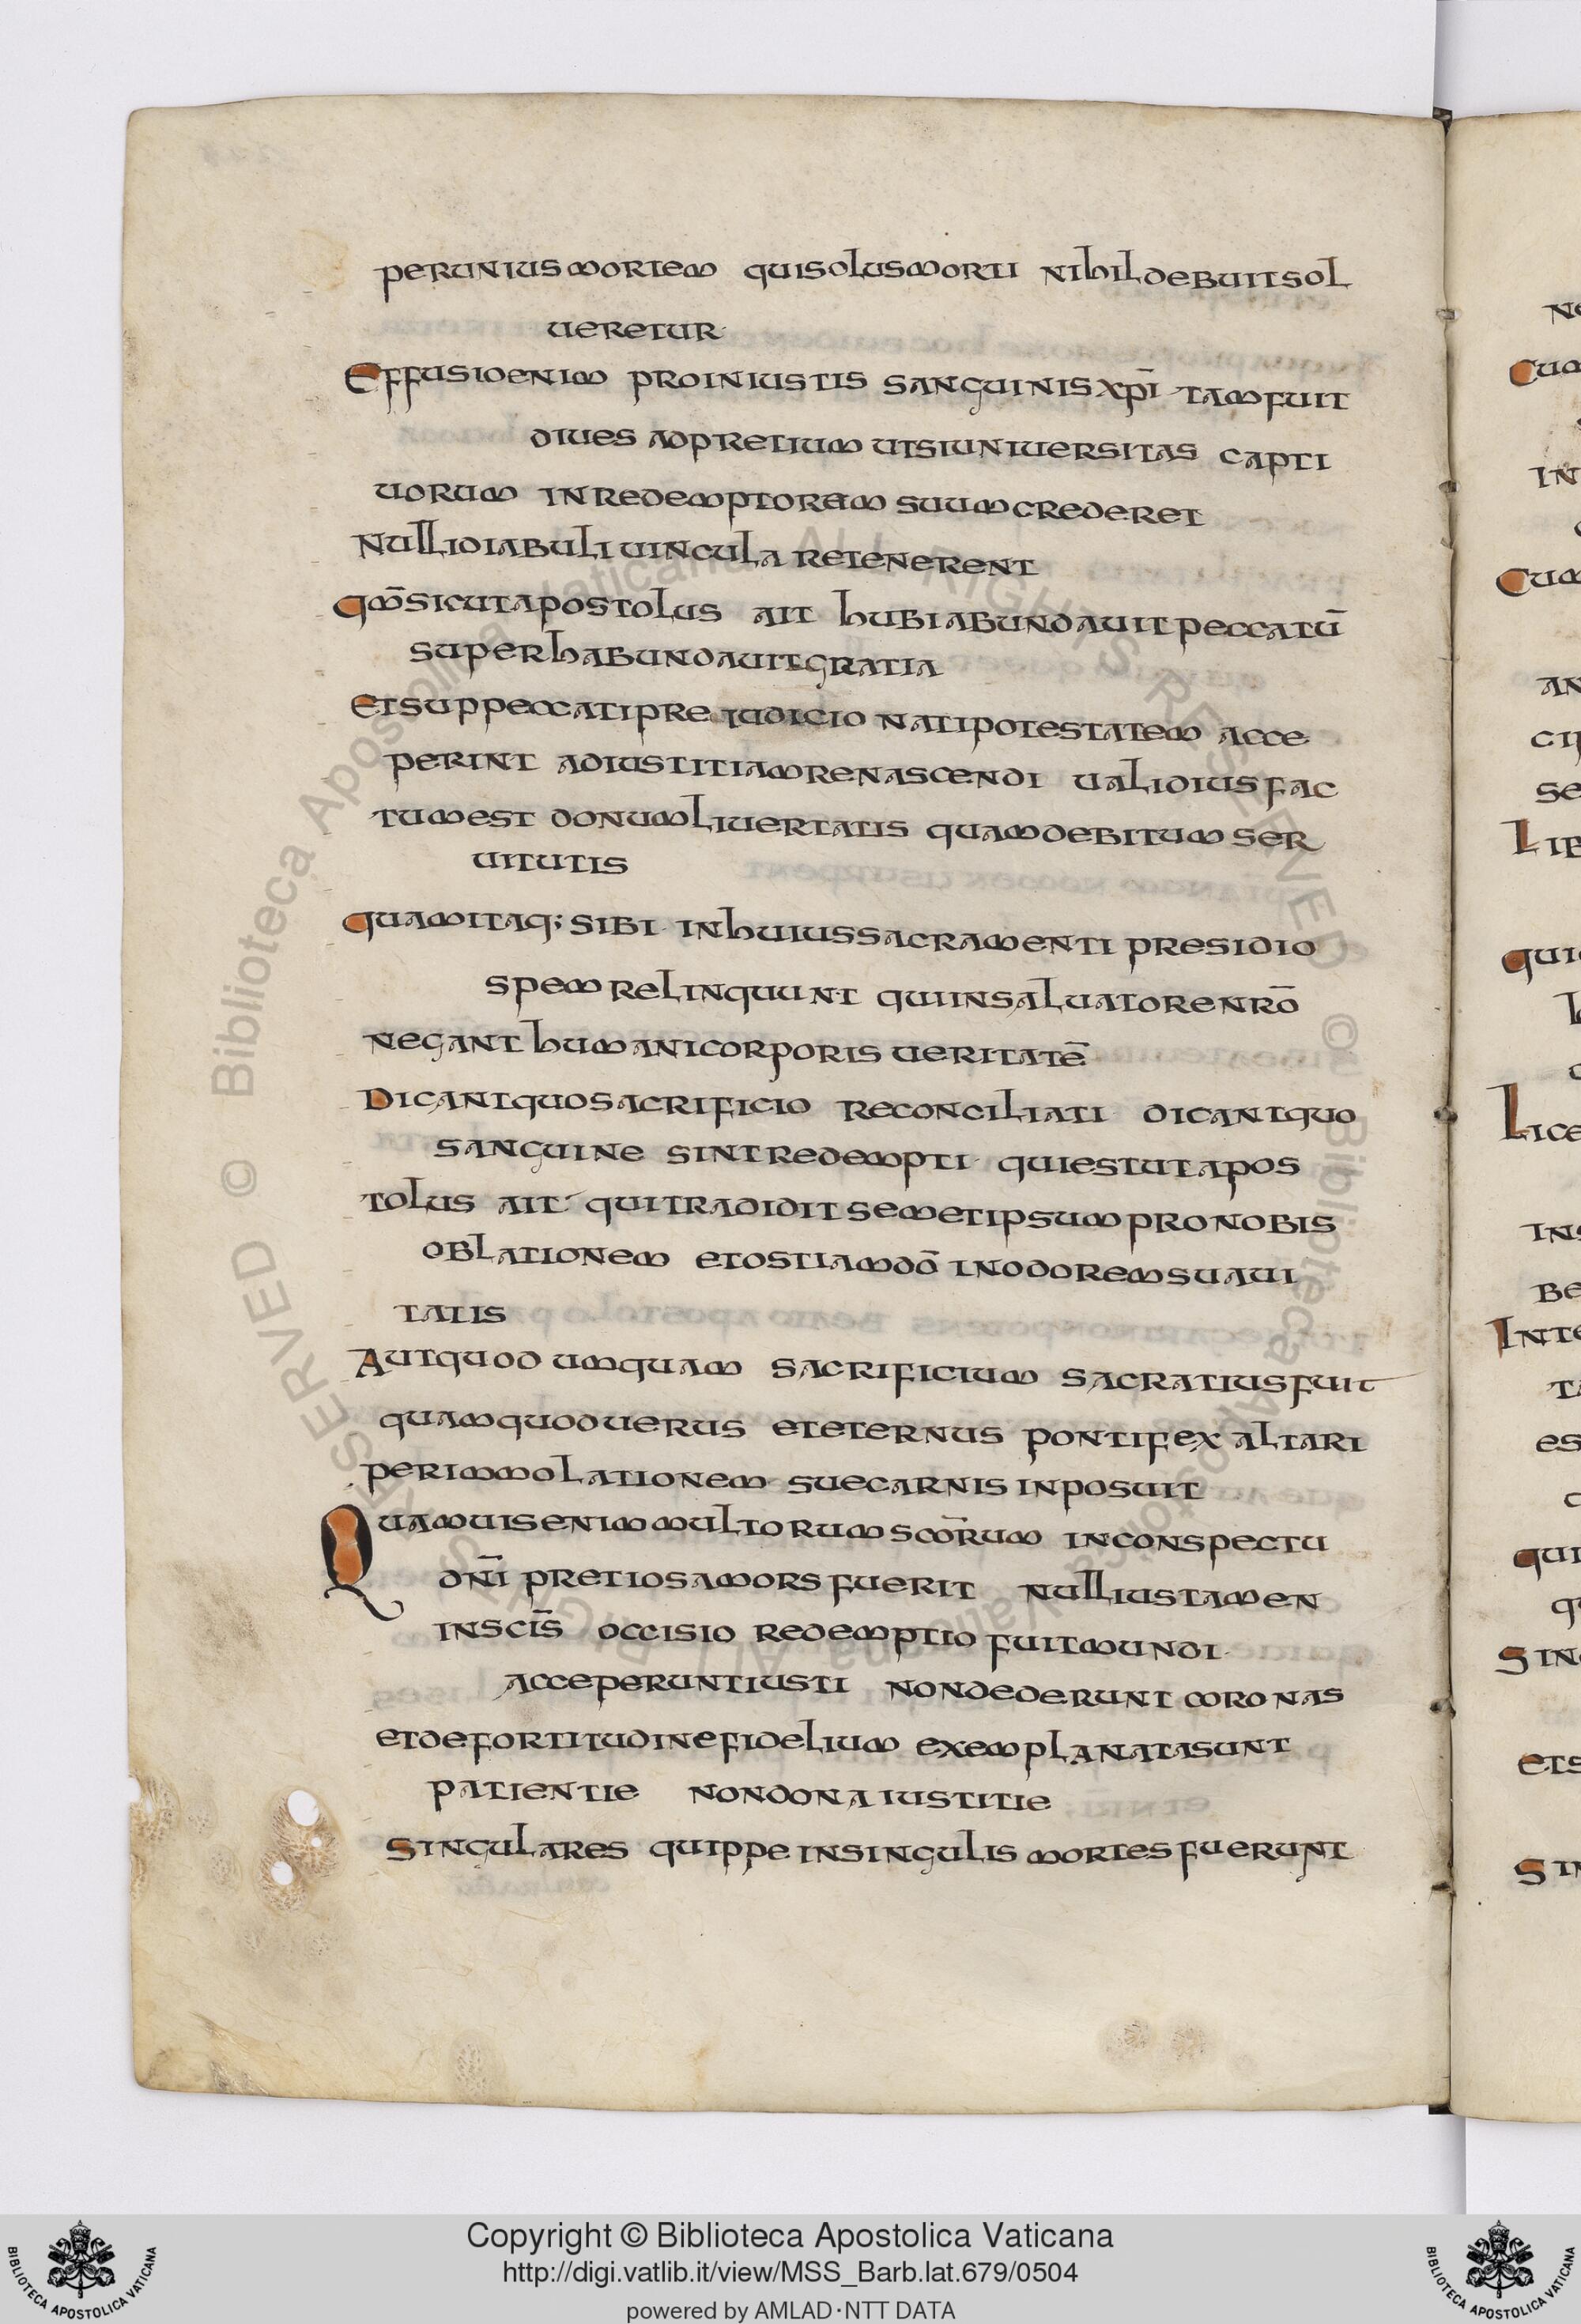 perunius mortem quisolusmorti nihildebuitsol
ueretur·
Effusioenim proiniustis sanguinisxp̄i·tamfuit
diues adpretium utsiuniuersitas capti
uorum inredemptorem suumcrederet
Nullidiabuli uincula retenerent
qm̄sicutapostolus ait hubiabundauitpeccatū
superhabundauitgratia
Etsuppeccatipre iudicio natipotestatem acce
perint adiustitiamrenascendi ualidiusfac
tumest donumliuertatis quamdebitum ser
uitutis
quamitaq; sibi· inhuiussacramenti presidio
spem relinquunt quiinsaluatorenrō
negant humanicorporis ueritatē
Dicantquosacrificio reconciliati dicantquo
sanguine sintredempti· quiestutapos
tolus ait· quitradiditsemetipsumpronobis
oblationem etostiamdō inodoremsuaui
tatis
Autquod umquam sacrificium sacratiusfuit
quamquoduerus eteternus pontifex altari
perimmolationem suecarnis inposuit
Quamuisenimmultorumscōrum inconspectu
dn̄i pretiosamorsfuerit nulliustamen
inscīs occisio redemptio fuitmundi·
acceperuntiusti nondederunt coronas
etdefortitudinefidelium exemplanatasunt
patientie nondonaiustitie
Singulares quippeinsingulis mortesfuerunt
Ne
Cum
IN
Cum
AN
CIP
se
LIB
qui
Lice
INS
Be
INte
TA
es
qui
q
SIN
ets
SIN
© Biblioteca Apostolica Vaticana ALL RIGHTS RESERVED © Biblioteca Apostolica Vaticana ALL RIGHTS RESERVED
Copyright © Biblioteca Apostolica Vaticana
http://digi.vatlib.it/view/MSS_Barb.lat.679/0504
powered by AMLAD·NTT DATA
BIBLIOTECA APOSTOLICA VATICANA
BIBLIOTECA APOSTOLICA VATICANA